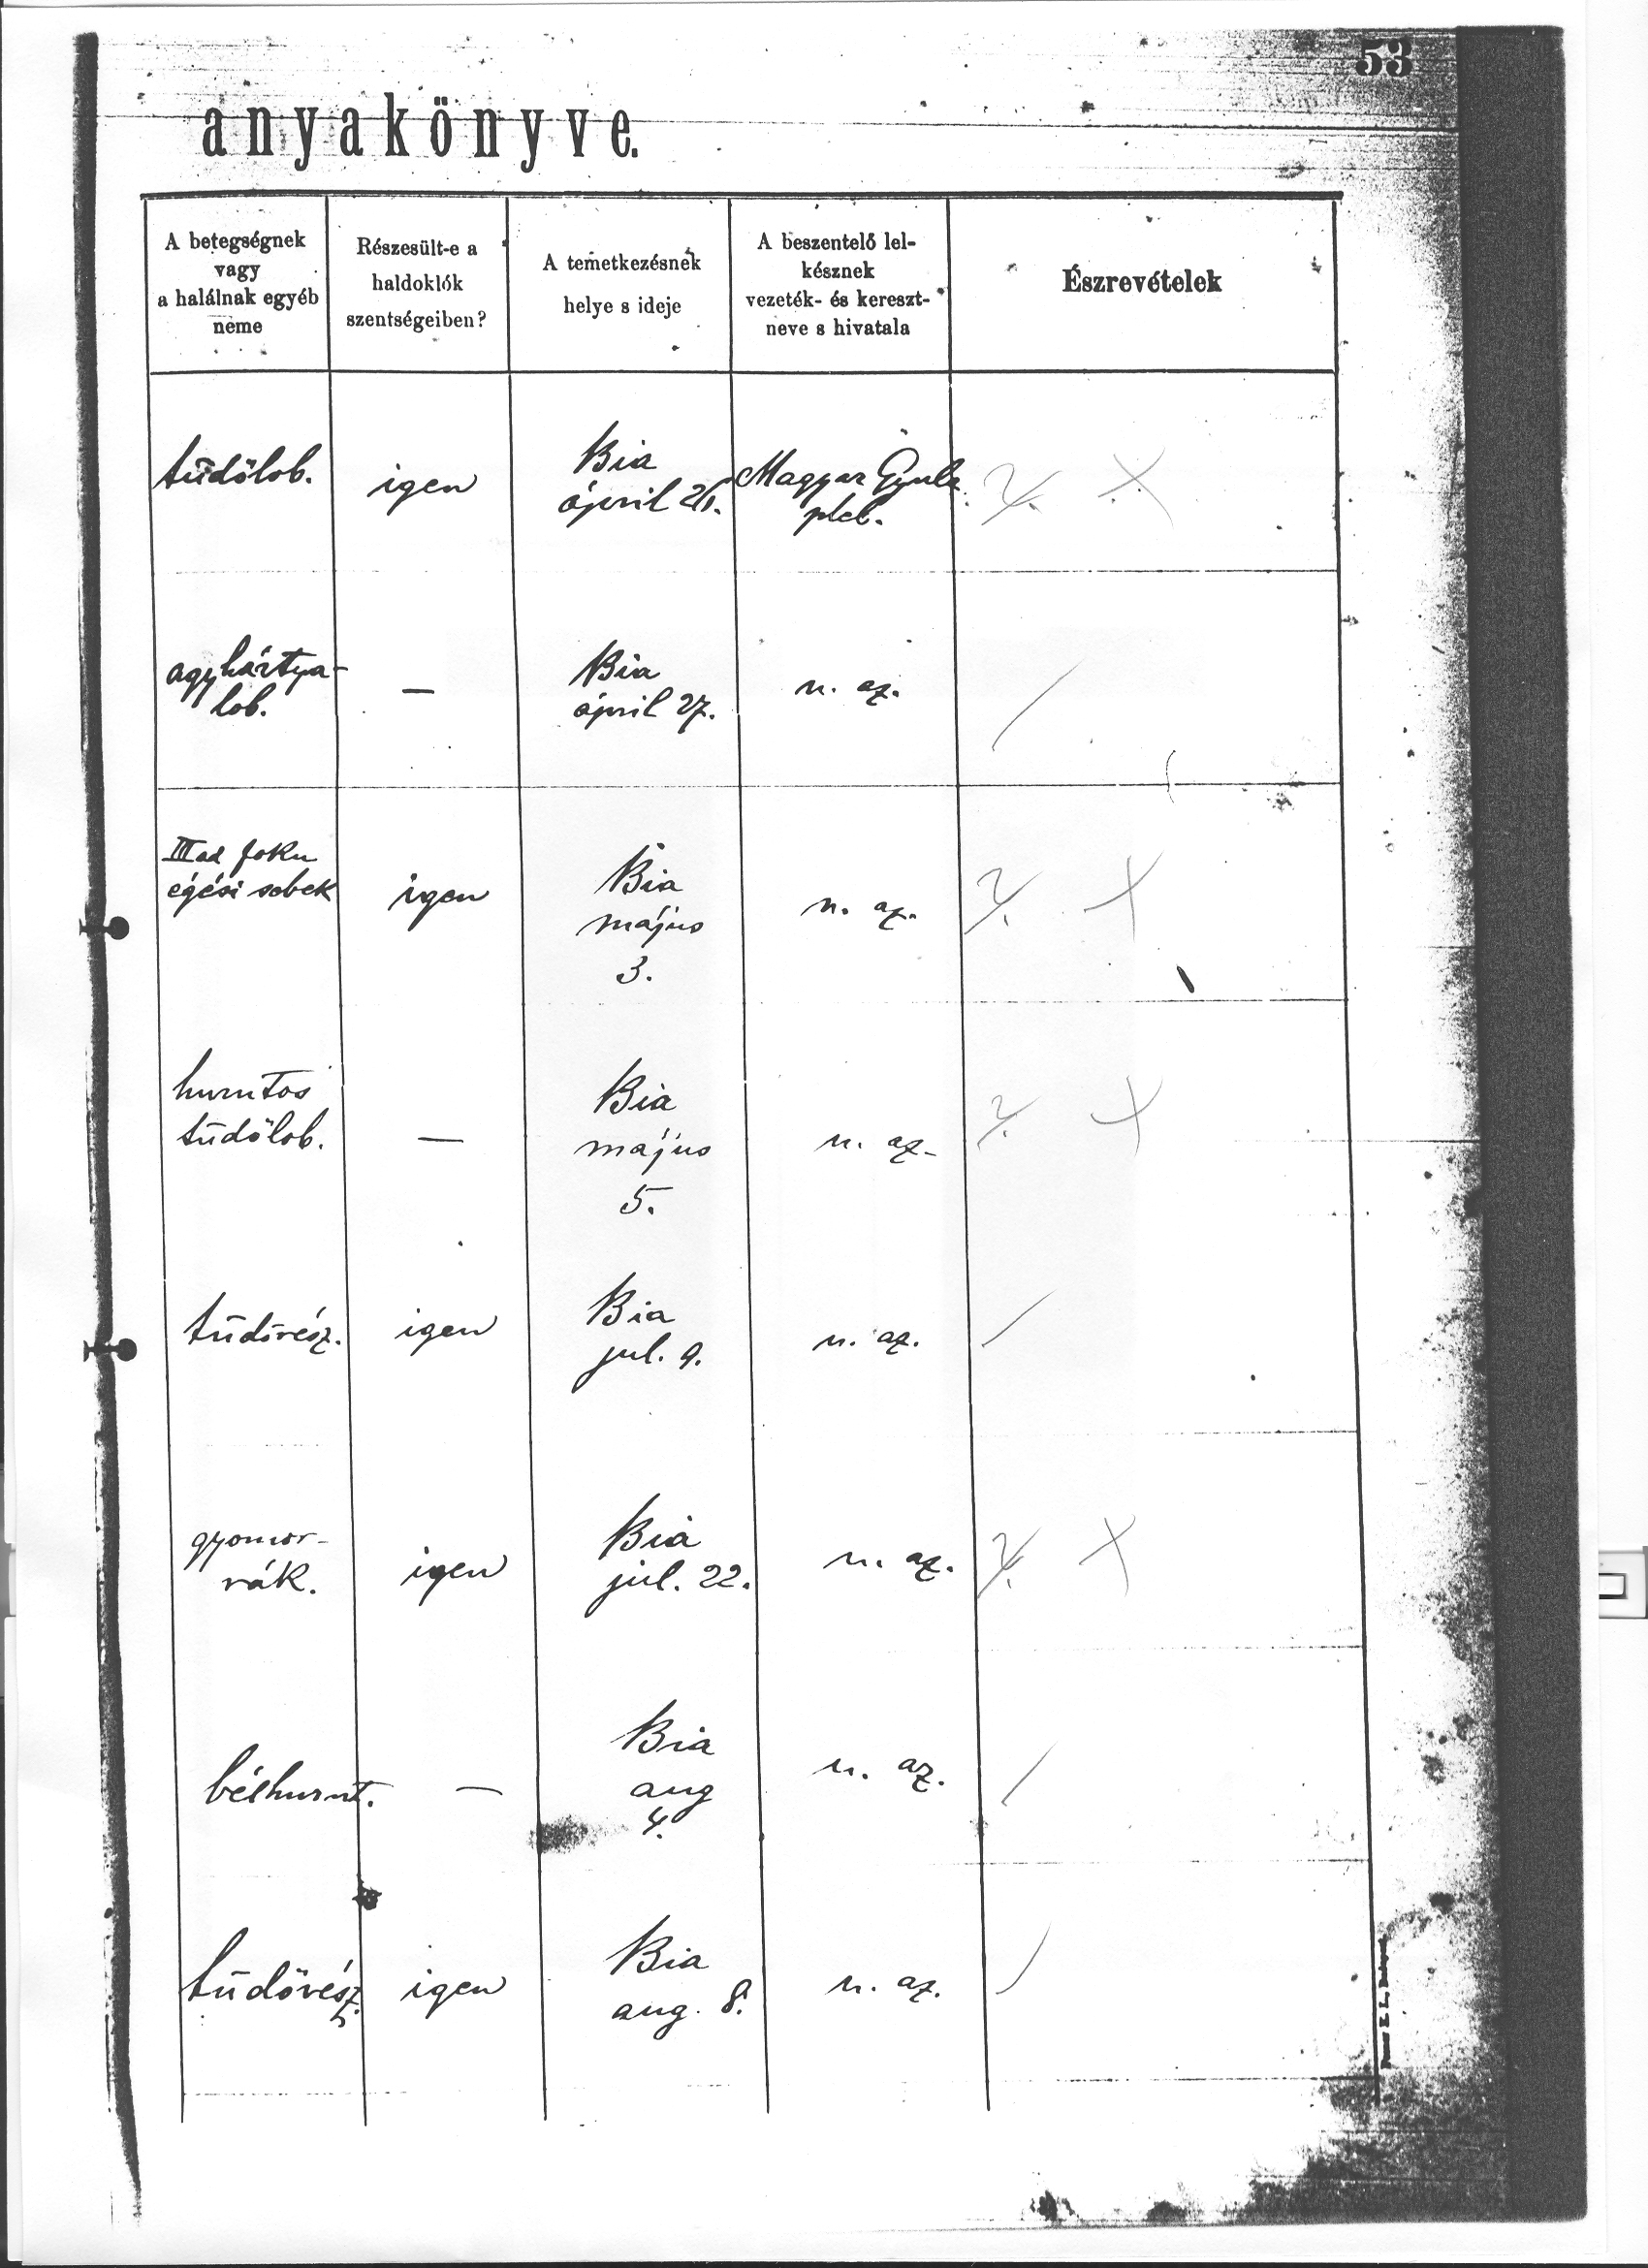 53
anyakönyve.
A betegségnek
vagy
a halálnak egyéb
neme
Részesült-e a
haldoklók
szentségeiben?
A temetkezésnek
helye s ideje
A beszentelő lel-
késznek
vezeték- és kereszt-
neve s hivatala
Észrevételek
tüdőlob.
igen
Bia
április 26.
Magyar Gyula
pleb.
agyhártya-
lob.
—
Bia
április 27.
u. az.
IIIad foku
égési sebek
igen
Bia
május
3.
u. az.
hurutos
tüdőlob.
—
Bia
május
5.
u. az.
tüdővész.
igen
Bia
jul. 9.
u. az.
gyomor-
rák.
igen
Bia
jul. 22.
u. az.
bélhurut.
—
Bia
aug
4.
u. az.
tüdővész.
igen
Bia
aug. 8.
u. az.